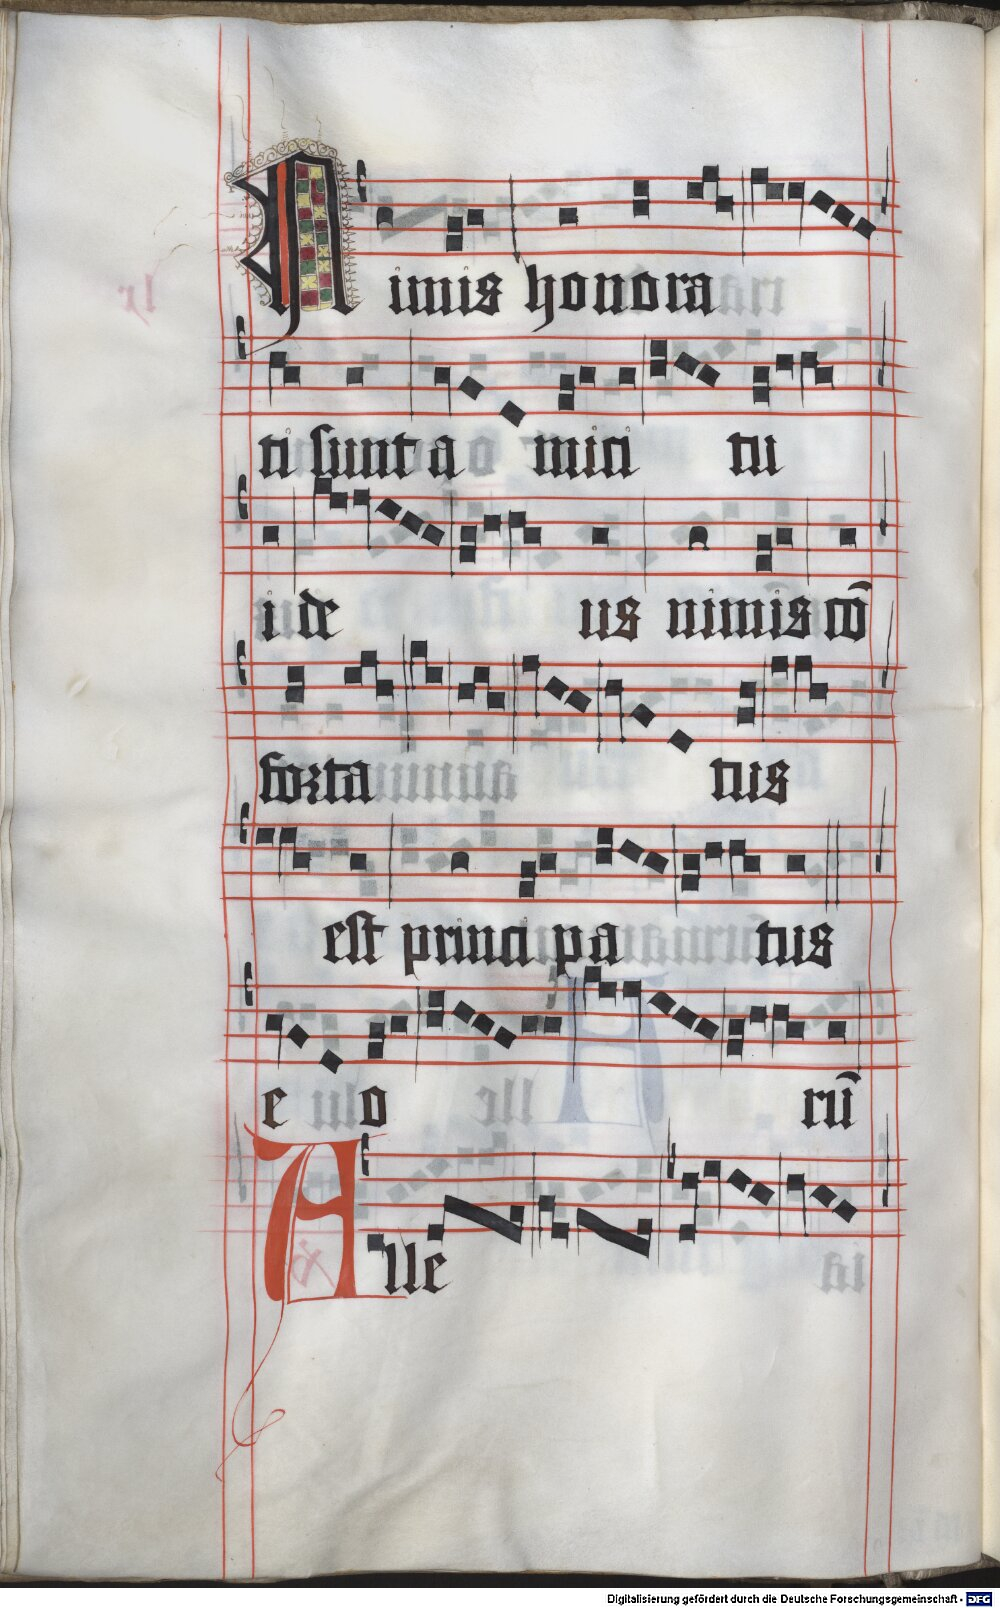 Nimis honora
ti sunt a mici tu
i de us nimis cō
forta tus
est princi pa tus
e o rū
Alle
Digitalisierung gefördert durch die Deutsche Forschungsgemeinschaft - DFG